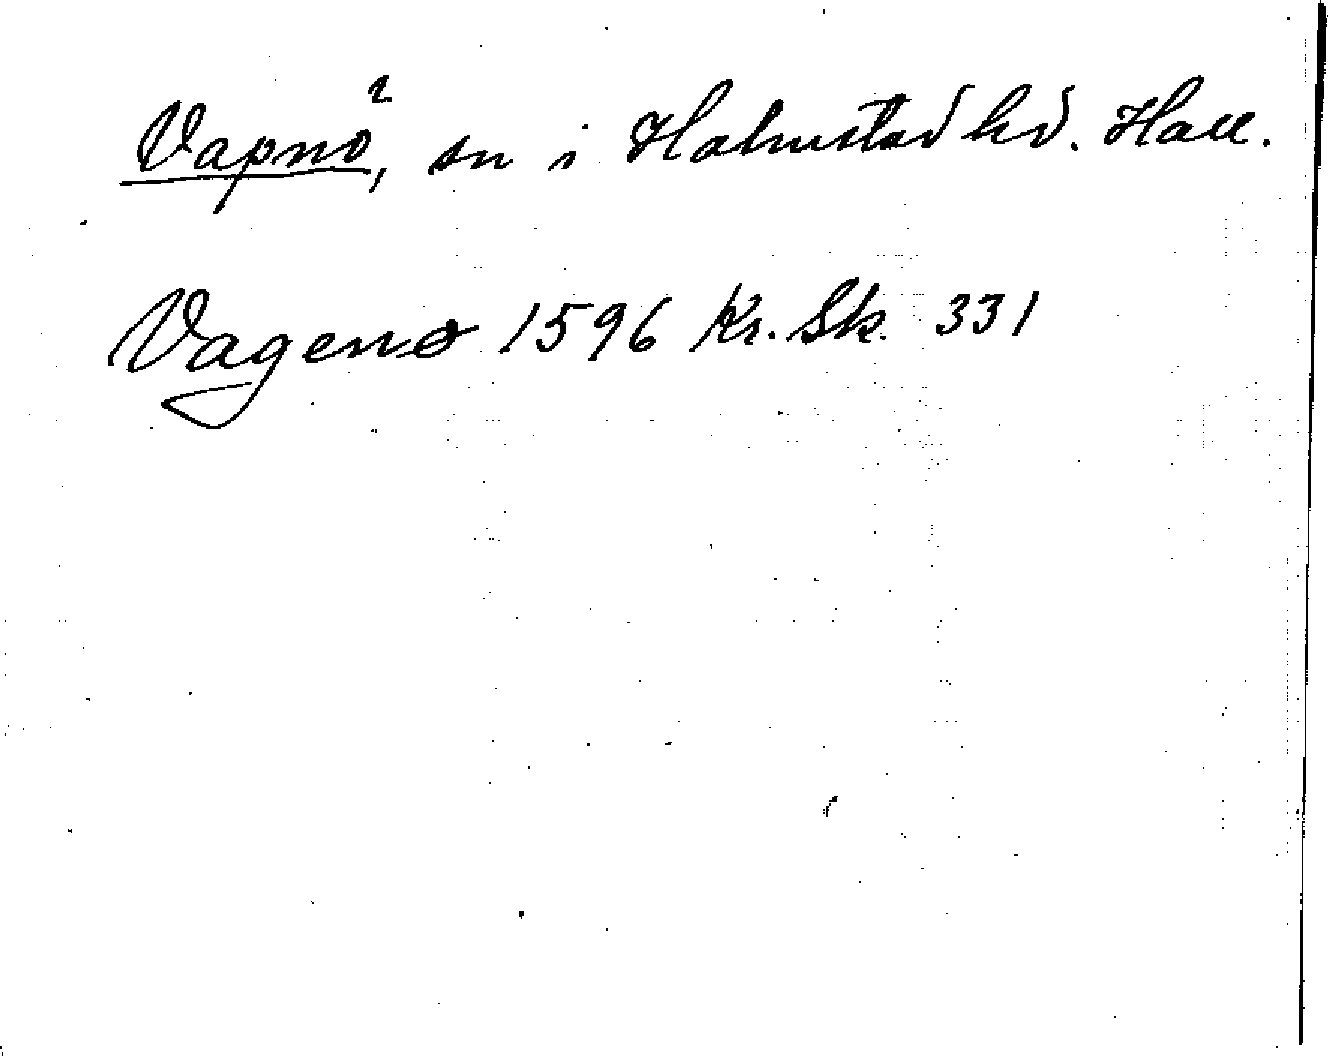 Vapnö, sn i Halmstad hd. Hall.
Vagenø 1596 Kr. Sk. 331